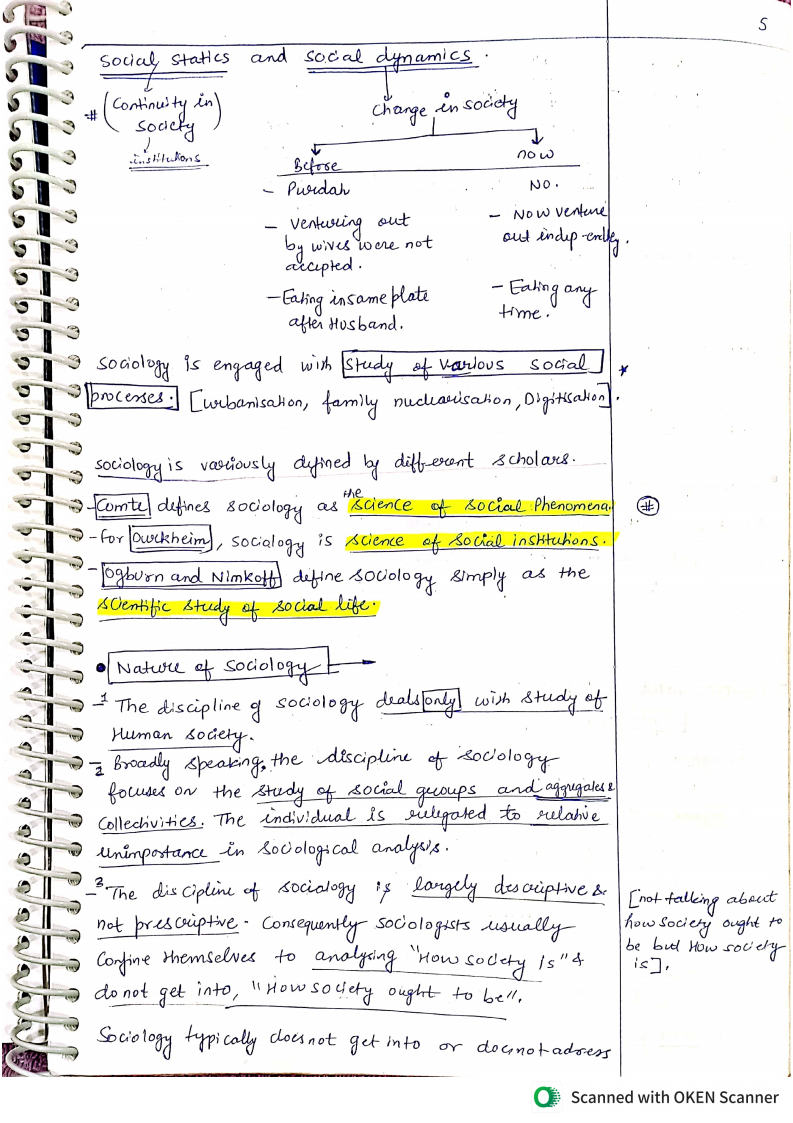 5
Social statics and social dynamics.
# (Continuity in society)
institutions
Change in society
Before
now
- Purdah
NO.
- Venturing out
by wives were not
accepted.
- Now venture
out indep-endly.
- Eating in same plate
after Husband.
- Eating any
time.
Sociology is engaged with study of various social *
processes. [urbanisation, family nuclearisation, Digitisation].
Sociology is variously defined by different scholars.
- Comte defines sociology as the science of social Phenomena. #
- For Durkheim, sociology is science of social institutions.
- Ogburn and Nimkoff define sociology simply as the
scientific study of social life.
• Nature of Sociology →
-1 The discipline of sociology deals only with study of
Human society.
-2 Broadly speaking, the discipline of sociology
focuses on the study of social groups and aggregates &
Collectivities. The individual is relegated to relative
unimportance in sociological analysis.
-3 The discipline of sociology is largely descriptive &
not prescriptive. Consequently sociologists usually
Confine themselves to analysing "How society is" &
do not get into, "How society ought to be".
[not talking about
how society ought to
be but How society
is].
Sociology typically does not get into or does not adress
Scanned with OKEN Scanner